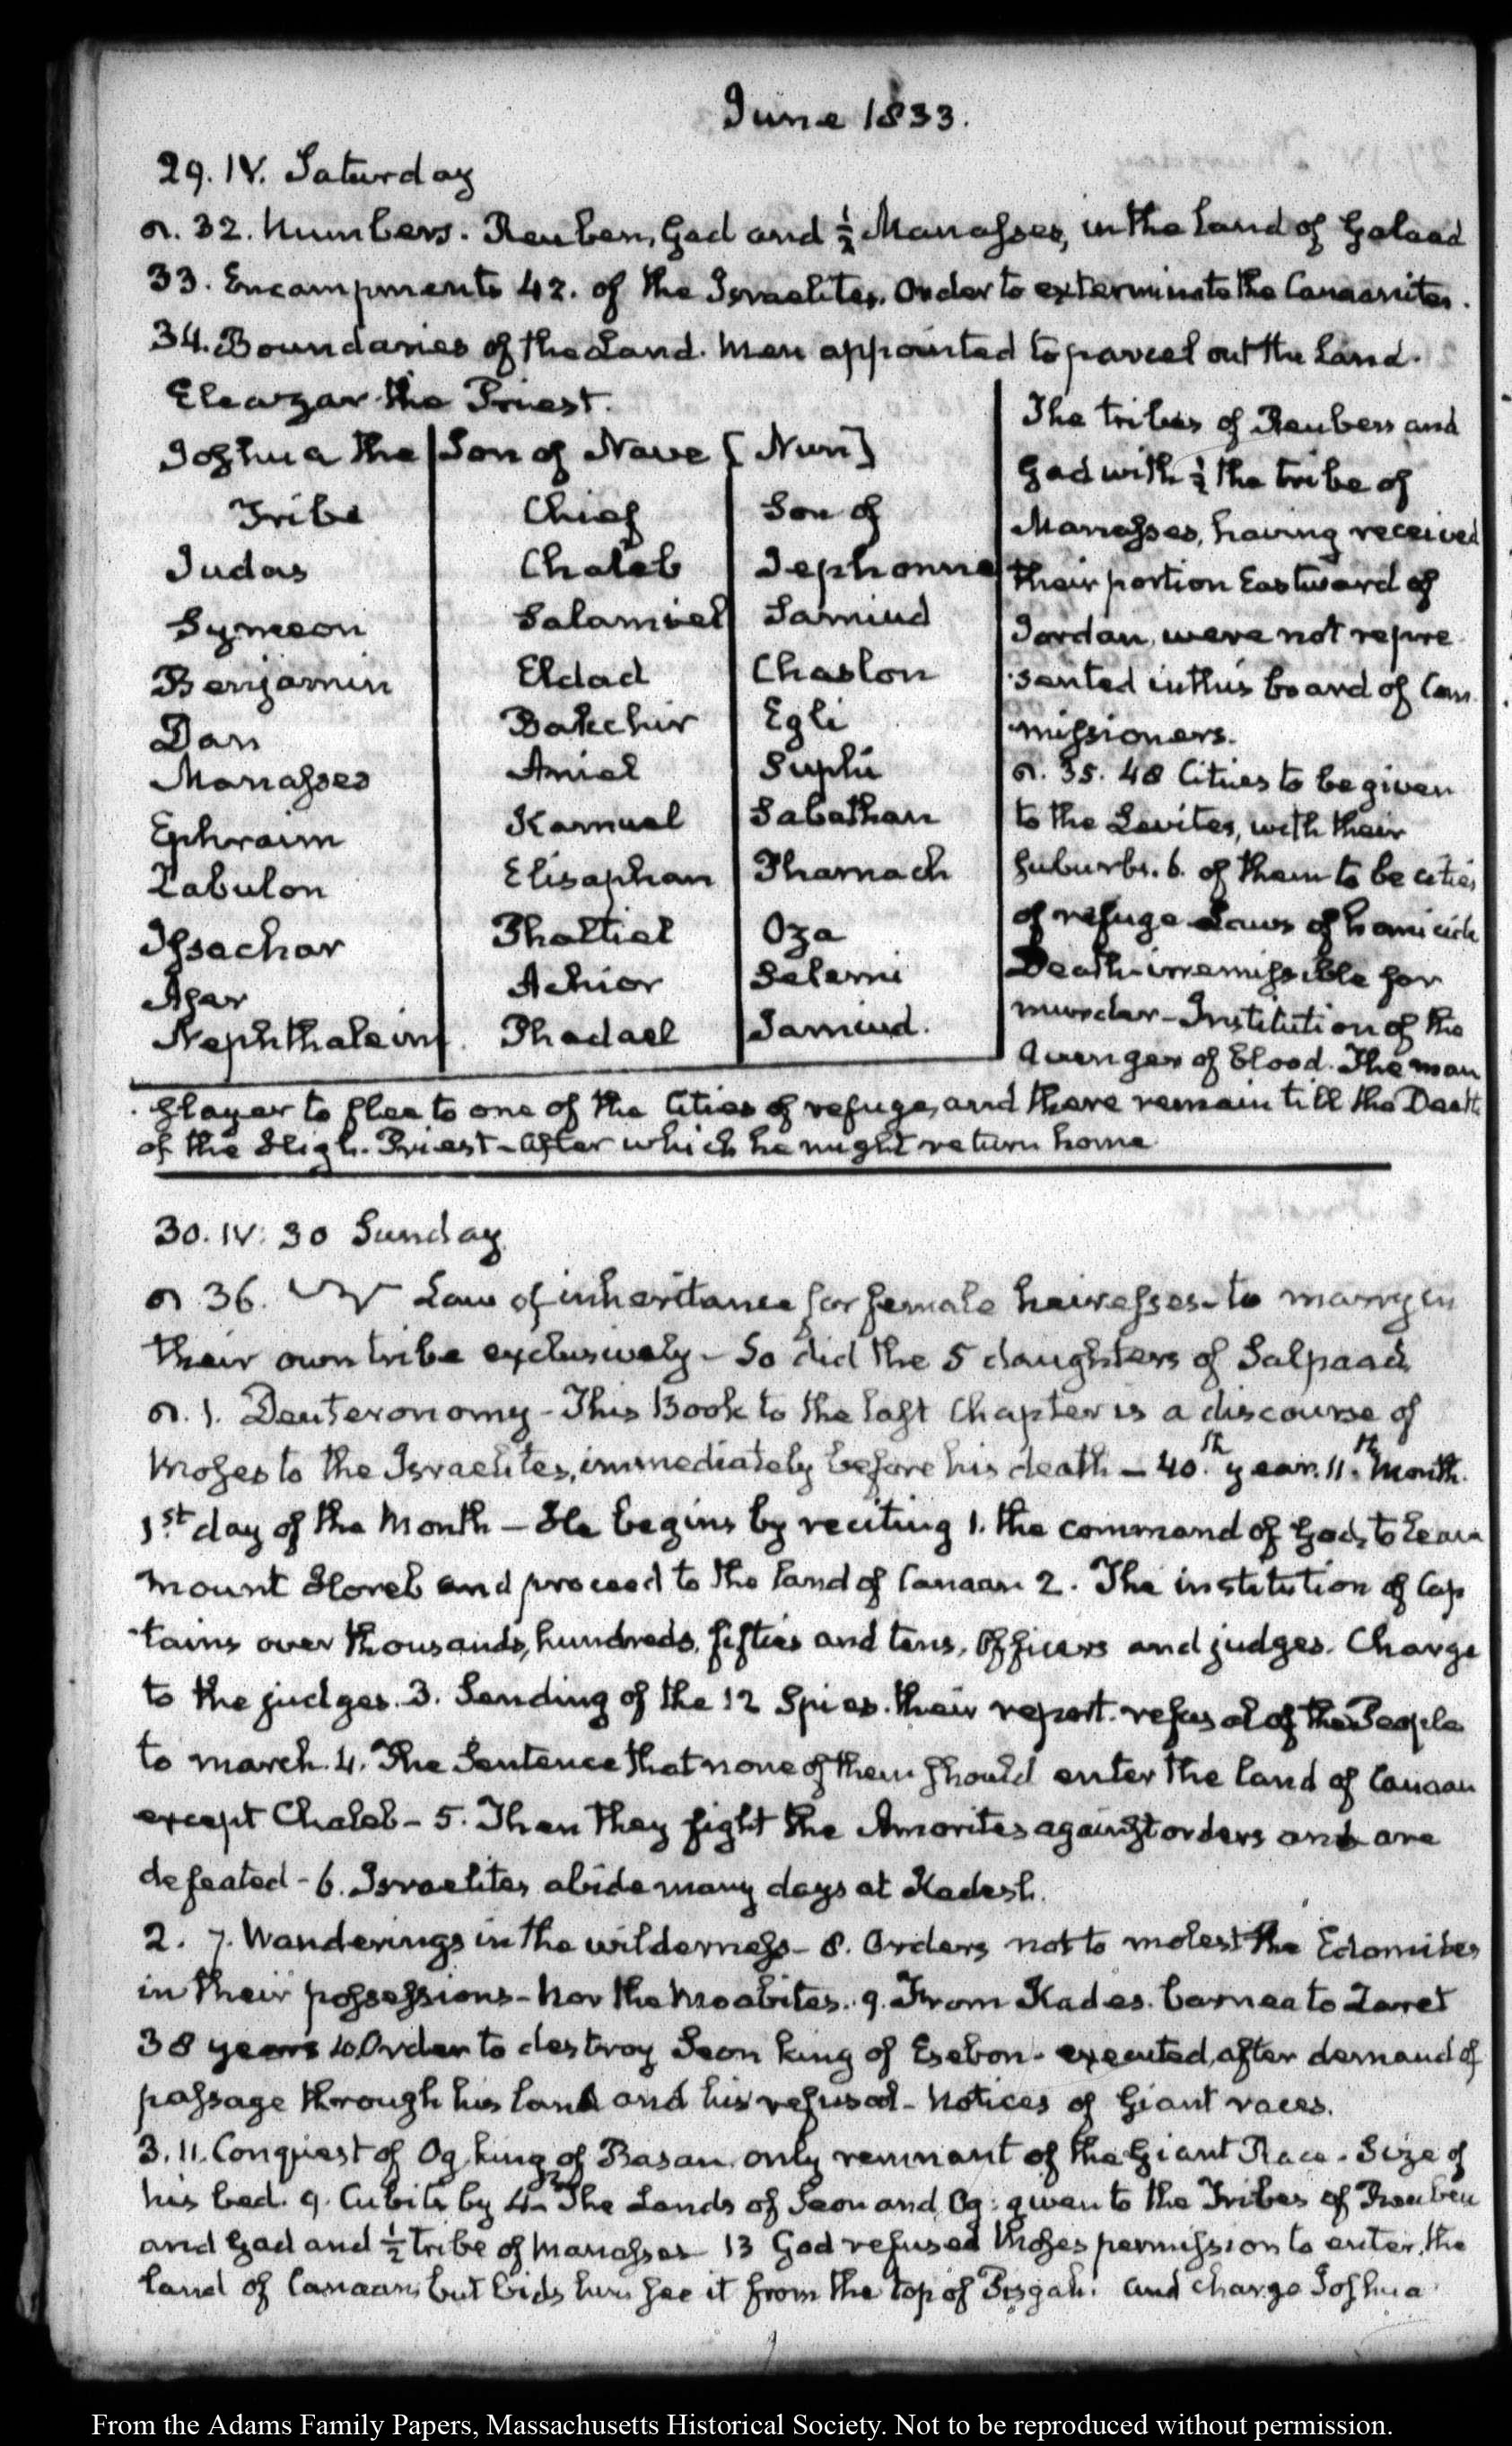 June 1833.
29. IV. Saturday
32. Numbers. Reuben, Gad and ½ Manasses, in the land of Galaad
33. Encampments 42. of the Israelites. Order to exterminate the Canaanites.
34. Boundaries of the Land. Men appointed to parcel out the Land.
Eleazar the Priest.
Joshua the Son of Nave [Nun]
Tribe Chief Son of
Judas Chaleb Jephonne
Symeon Salamiel Samiud
Benjamin Eldad Chaslon
Dan Bakchir Egli
Manasses Aniel Suphi
Ephraim Kamuel Sabathan
Zabulon Elisaphan Pharnach
Issachar Phaltiel Oza
Aser Achior Selemi
Nephthaleim. Phadael Jamiud.
The tribes of Reuben and
Gad with ½ the tribe of
Manasses, having received
their portion Eastward of
Jordan, were not repre
sented in this board of Com
missioners.
35. 48 Cities to be given
to the Levites, with their
suburbs. 6. of them to be cities
of refuge Laws of homicide
Death irremissible for
murder - Institution of the
Avenger of blood. The man
slayer to flee to one of the Cities of refuge, and there remain till the Death
of the High-Priest - after which he might return home
30. IV: 30 Sunday
36. Law of inheritance for female heiresses - to marry in
their own tribe exclusively - So did the 5 daughters of Salpaad
1. Deuteronomy - This Book to the last Chapter is a discourse of
Moses to the Israelites, immediately before his death - 40th year. 11th Month.
1st day of the Month - He begins by reciting 1. the command of God, to leave
mount Horeb and proceed to the land of Canaan 2. The institution of Cap
tains over thousands, hundreds, fifties and tens, Officers and judges. Charge
to the judges. 3. Sending of the 12 Spies. their report. refusal of the People
to march. 4. The Sentence that none of them should enter the land of Canaan
except Chaleb - 5. Then they fight the Amorites against orders and are
defeated - 6. Israelites abide many days at Kadesh.
2. 7. Wanderings in the wilderness - 8. Orders not to molest the Edomites
in their possessions - Nor the Moabites. 9. From Kades. barnea to Zaret
38 years 10. Order to destroy Seon king of Esebon - executed, after demand of
passage through his land and his refusal - Notices of Giant races.
3. 11. Conquest of Og king of Basan. only remnant of the Giant Race - Size of
his bed. 9. Cubits by 4 - 12 The Lands of Seon and Og: given to the Tribes of Reuben
and Gad and ½ tribe of Manasses 13 God refused Moses permission to enter, the
land of Canaan, but bids him see it from the top of Pisgah. and charge Joshua
From the Adams Family Papers, Massachusetts Historical Society. Not to be reproduced without permission.